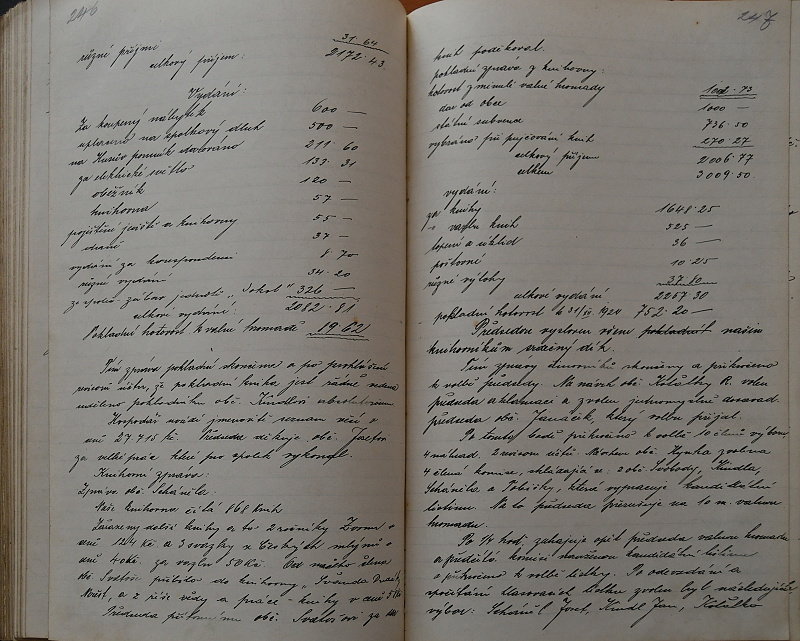 246
různé příjmy 31·64
celkový příjem: 2172·43
Vydání:
Za koupený nábytek 600 —
uplaceno na spolkový dluh 500 —
na Husův pomník darováno 211·60
za elektrické světlo 133·31
oběžník 120 —
knihovna 57 —
pojištění jeviště a knihovny 55 —
daně 37 —
vydání za korespondenci 8·70
různé vydání 34·20
za společ. zábav jednotě „Sokol" 326 —
celkové vydání: 2082·81
Pokladní hotovost k valné hromadě 1962
Tím zpráva pokladní skončena a po prohlášení
revisorů účtů, že pokladní kniha jest řádně vedena
uděleno pokladníku obč. Kindlovi absolutorium.
Hospodář uvádí jmenovitě seznam věcí v
ceně 27.715 Kč. Předseda děkuje obč.
za velké práce které pro spolek vykonal.
Knihovní zpráva:
Zpráva obč. Schánila.
Naše knihovna čítá 868 knih
Zakoupeny další knihy a to: 2 ročníky Zvonu v
ceně 124 Kč a 3 svazky z Českých mlýnů v
ceně 40 Kč, za vazbu 50 Kč. Od našeho člena
obč. přibylo do knihovny
a z říše vědy a práce - knihy v ceně
Předseda přítomnému obč. za
247
knih poděkoval.
pokladní zpráva z knihovny:
hotovost z minulé valné hromady 73
dar od obce 1000 —
státní subvence 736·50
vybráno při půjčování knih 270·27
celkový příjem 2006·77
celkem 3009·50
vydání:
za knihy 1648·25
„ vazbu knih 525 —
topení a úklid 36 —
poštovné 10·25
různé výlohy 37·80
celkové vydání 2257·30
pokladní hotovost k 31/ 1924 752·20 —
Předseda vysloven všem pokladní našim
knihovníkům srdečný dík.
Tím zprávy činovníků skončeny a přikročeno
k volbě předsedy. Na návrh obč. Košťálky R. volen
předseda aklamací a zvolen jednomyslně dosavad.
předseda obč. Janáčik, který volbu přijal.
Po tomto bodě přikročeno k volbě 10 členů výboru,
4 náhrad. 2 revisorů účtů. Návrhem obč. Hynka zvolena
4 členná komise, skládající se: z obč. Svobody, Kindla,
Schánila a která vypracuje kandidátní
listinu. Na to předseda přerušuje na 10 m. valnou
hromadu.
Po ¼ hod. zahajuje opět předseda valnou hromadu
a předčítá komisí navrženou kandidátní listinu
a přikročeno k volbě lístky. Po odevzdání a
spočítání hlasovacích lístků zvolen byl následující
výbor: Schánil Josef, Kindl Jan,